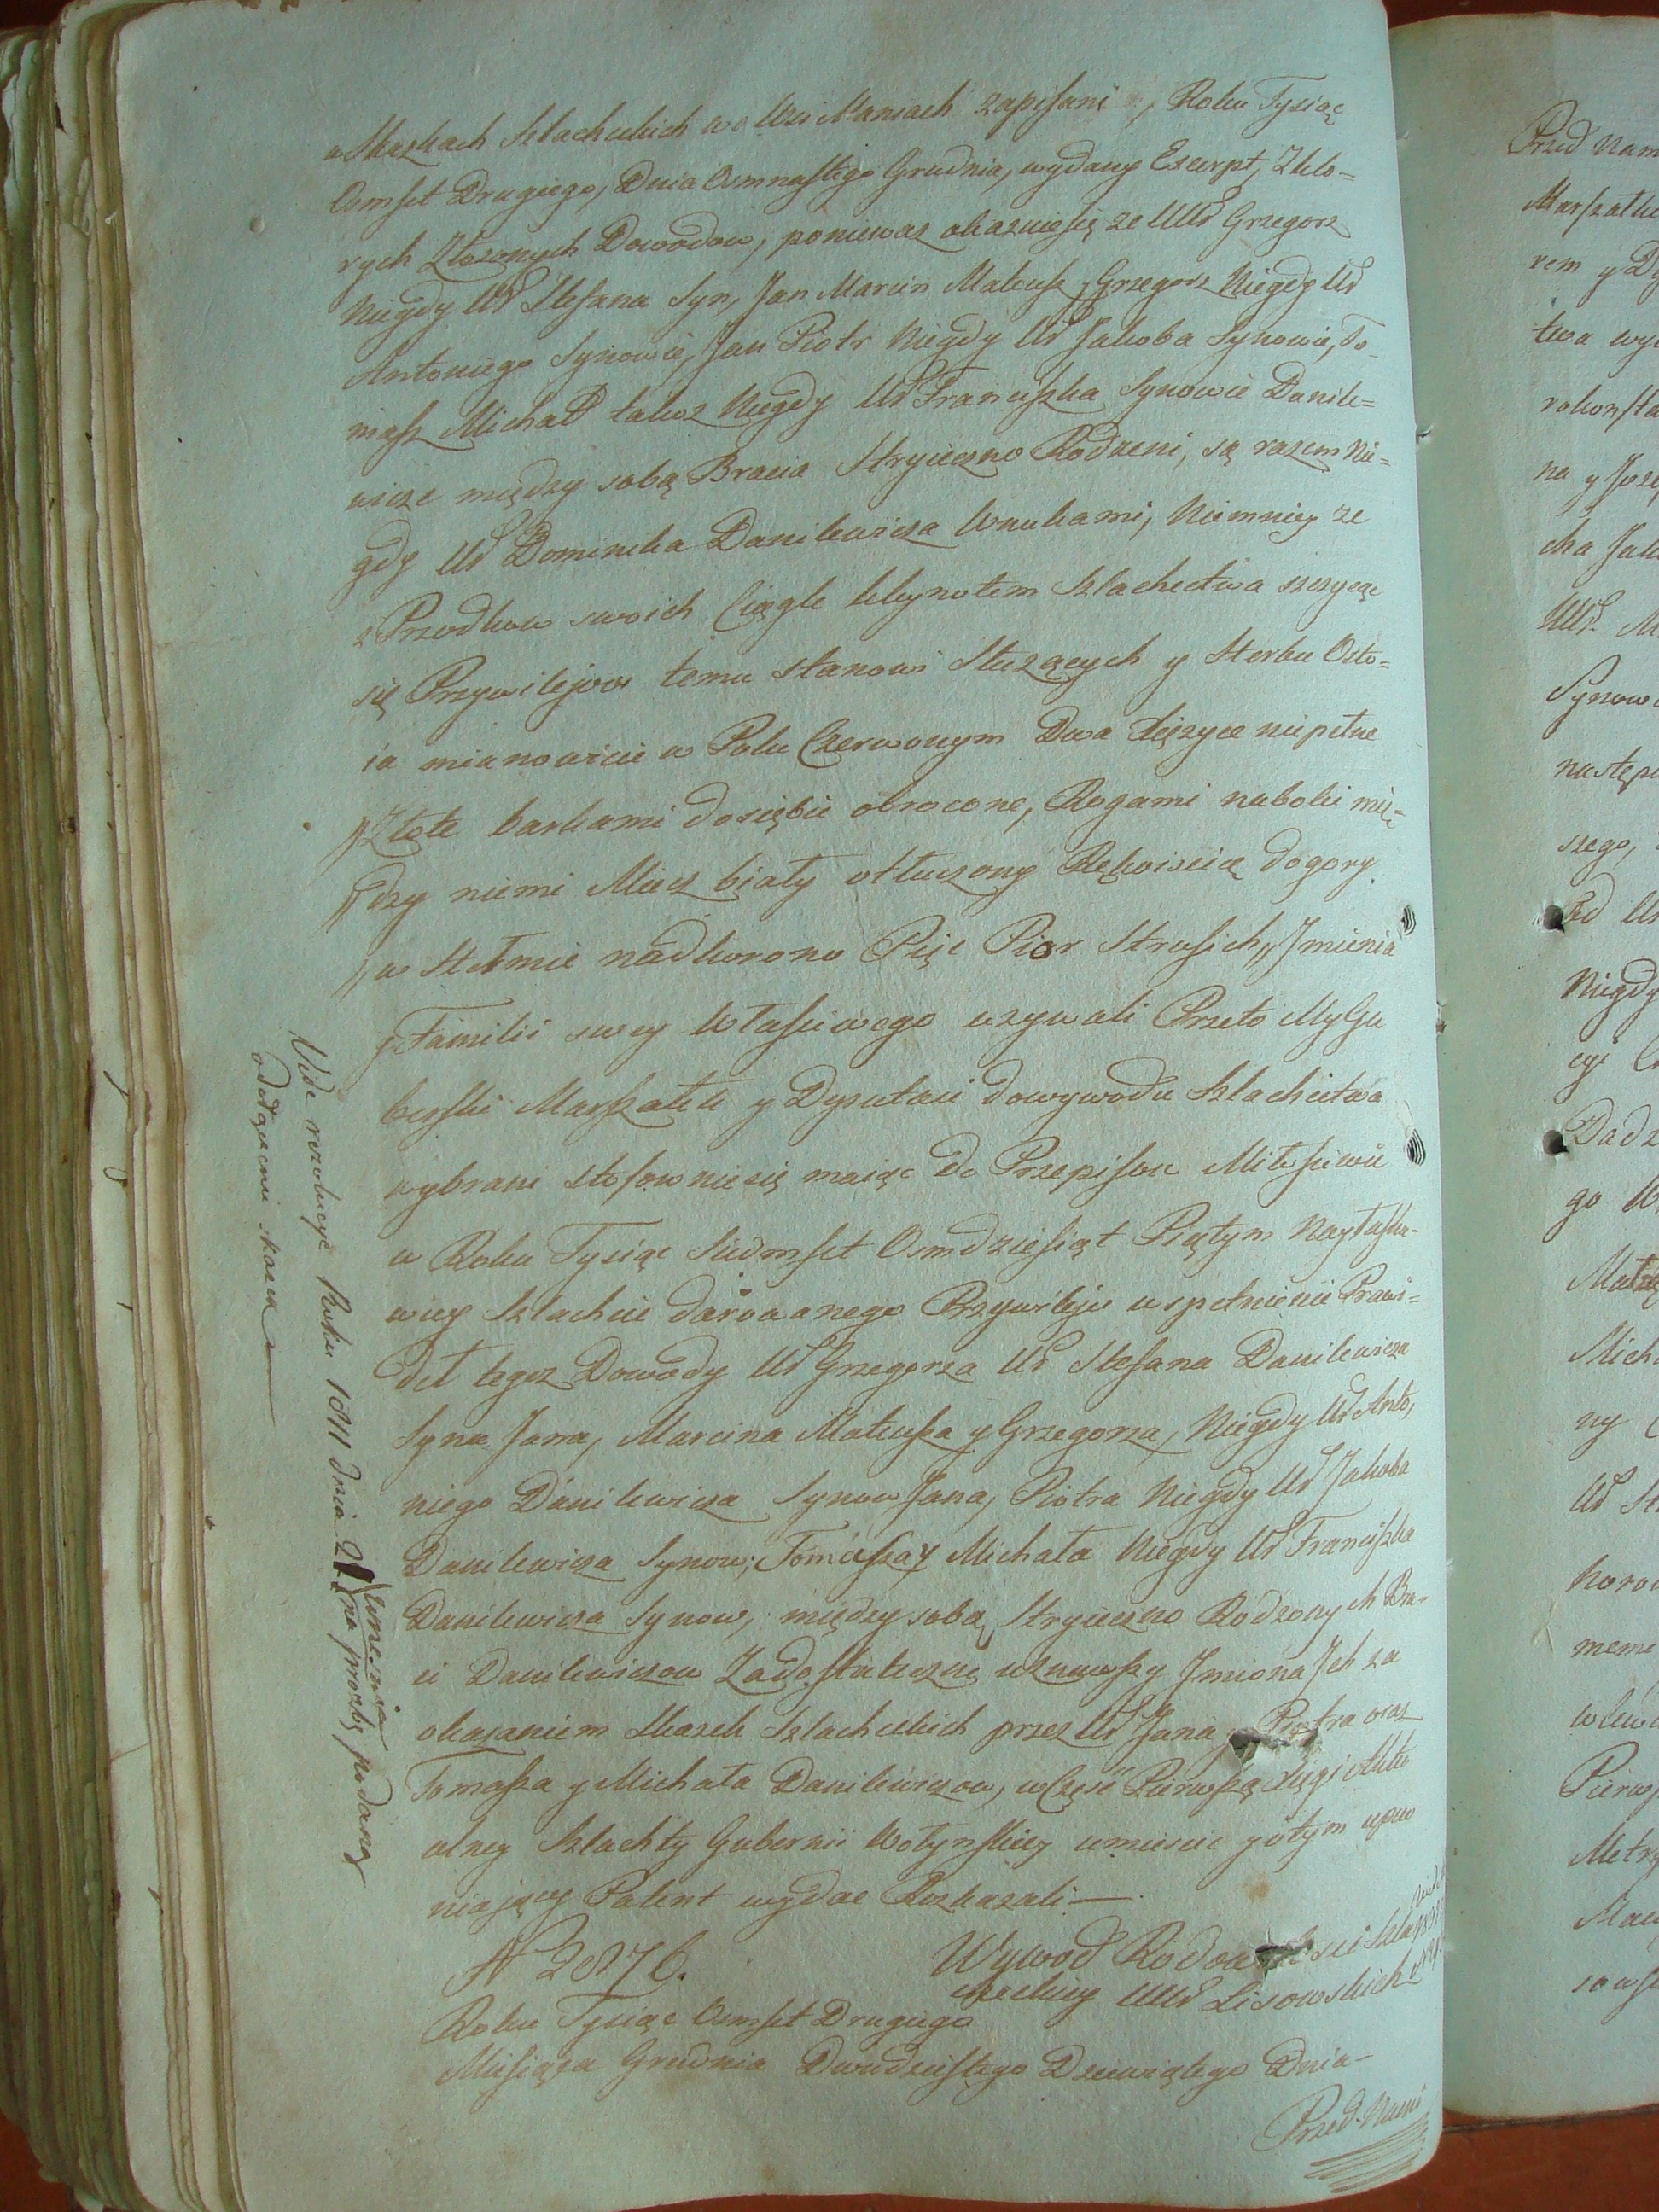 w Skazkach Szlacheckich we Wsi Maniach zapisani, Roku Tysiąc
Osmset Drugiego, Dnia Osmnastego Grudnia, wydany Excerpt, Z kto=
rych Złożonych Dowodow, ponieważ okazuie się że UUr Grzegorz
Niegdy Ur Stefana Syn, Jan Marcin Mateusz y Grzegorz Niegdy Ur
Antoniego Synowie, Jan Piotr Niegdy Ur Jakoba Synowie, To=
masz Michał także Niegdy Ur Franciszka Synowie Danile=
wicze między sobą Bracia Stryieczno Rodzeni, są razem Nie=
gdy Ur Dominika Danilewicza Wnukami, Niemniey że
z Przodkow swoich Ciągle kleynotem Szlachectwa szczycąc
się Przywilejow temu stanowi Służących y Herbu Osto=
ia mianowicie w Polu Czerwonym Dwa Xiężyce niepełne
Złote barkami do siebie obrocone, Rogami naboki mię=
dzy niemi Miecz biały otłuczony Rękoiscią dogory
w Hełmie nad koroną Pięć Pior Strusich, Jmienia
y Familii swey Własciwego używali Przeto My Gu
berski Marszałek y Deputaci do wywodu Szlachectwa
wybrani stosownie się maiąc do Przepisow Miłosciwie
w Roku Tysiąc Siedmset Osmdziesiąt Piątym Nayłaska=
wiey Szlachcie darowanego Przywileju w spełnienie Prawi=
deł tegoż Dowody Ur Grzegorza Ur Stefana Danilewicza
Syna Jana, Marcina Mateusza y Grzegorza, Niegdy Ur Anto,
niego Danilewicza Synow Jana, Piotra Niegdy Ur Jakoba
Danilewicza Synow; Tomasza y Michała Niegdy Ur Franciszka
Danilewicza Synow, między sobą Stryieczno Rodzonych Bra=
ci Danilewiczow Za dostateczne uznawszy Jmiona Jch za
okazaniem Skazek Szlacheckich przez Ur Jana y Piotra oraz
Tomasza y Michała Danilewiczow, w Część Pierwszą Xięgi Aktu
alney Szlachty Gubernii Wołynskiey umiescić y o tym upew
niający Patent wydać Rozkazali —
N 2876.
Wywod Rodowitosci Szla
checkiey UUr Lisowskich
Roku Tysiąc Osmset Drugiego
Miesiąca Grudnia Dwudziestego Dziewiątego Dnia —
Przed Nami
Vide rezolucyę Roku 1811 dnia na prozbę podaną
Wniesienia
o dołączeniu
Przed Nam
Marszałki
rem y De
twa wy
na y Joze
cha Jak
UUr. M
Synow
następ
szego,
Niegdy
go W
Mich
ny
Ur St
horo
Pierw
Metry